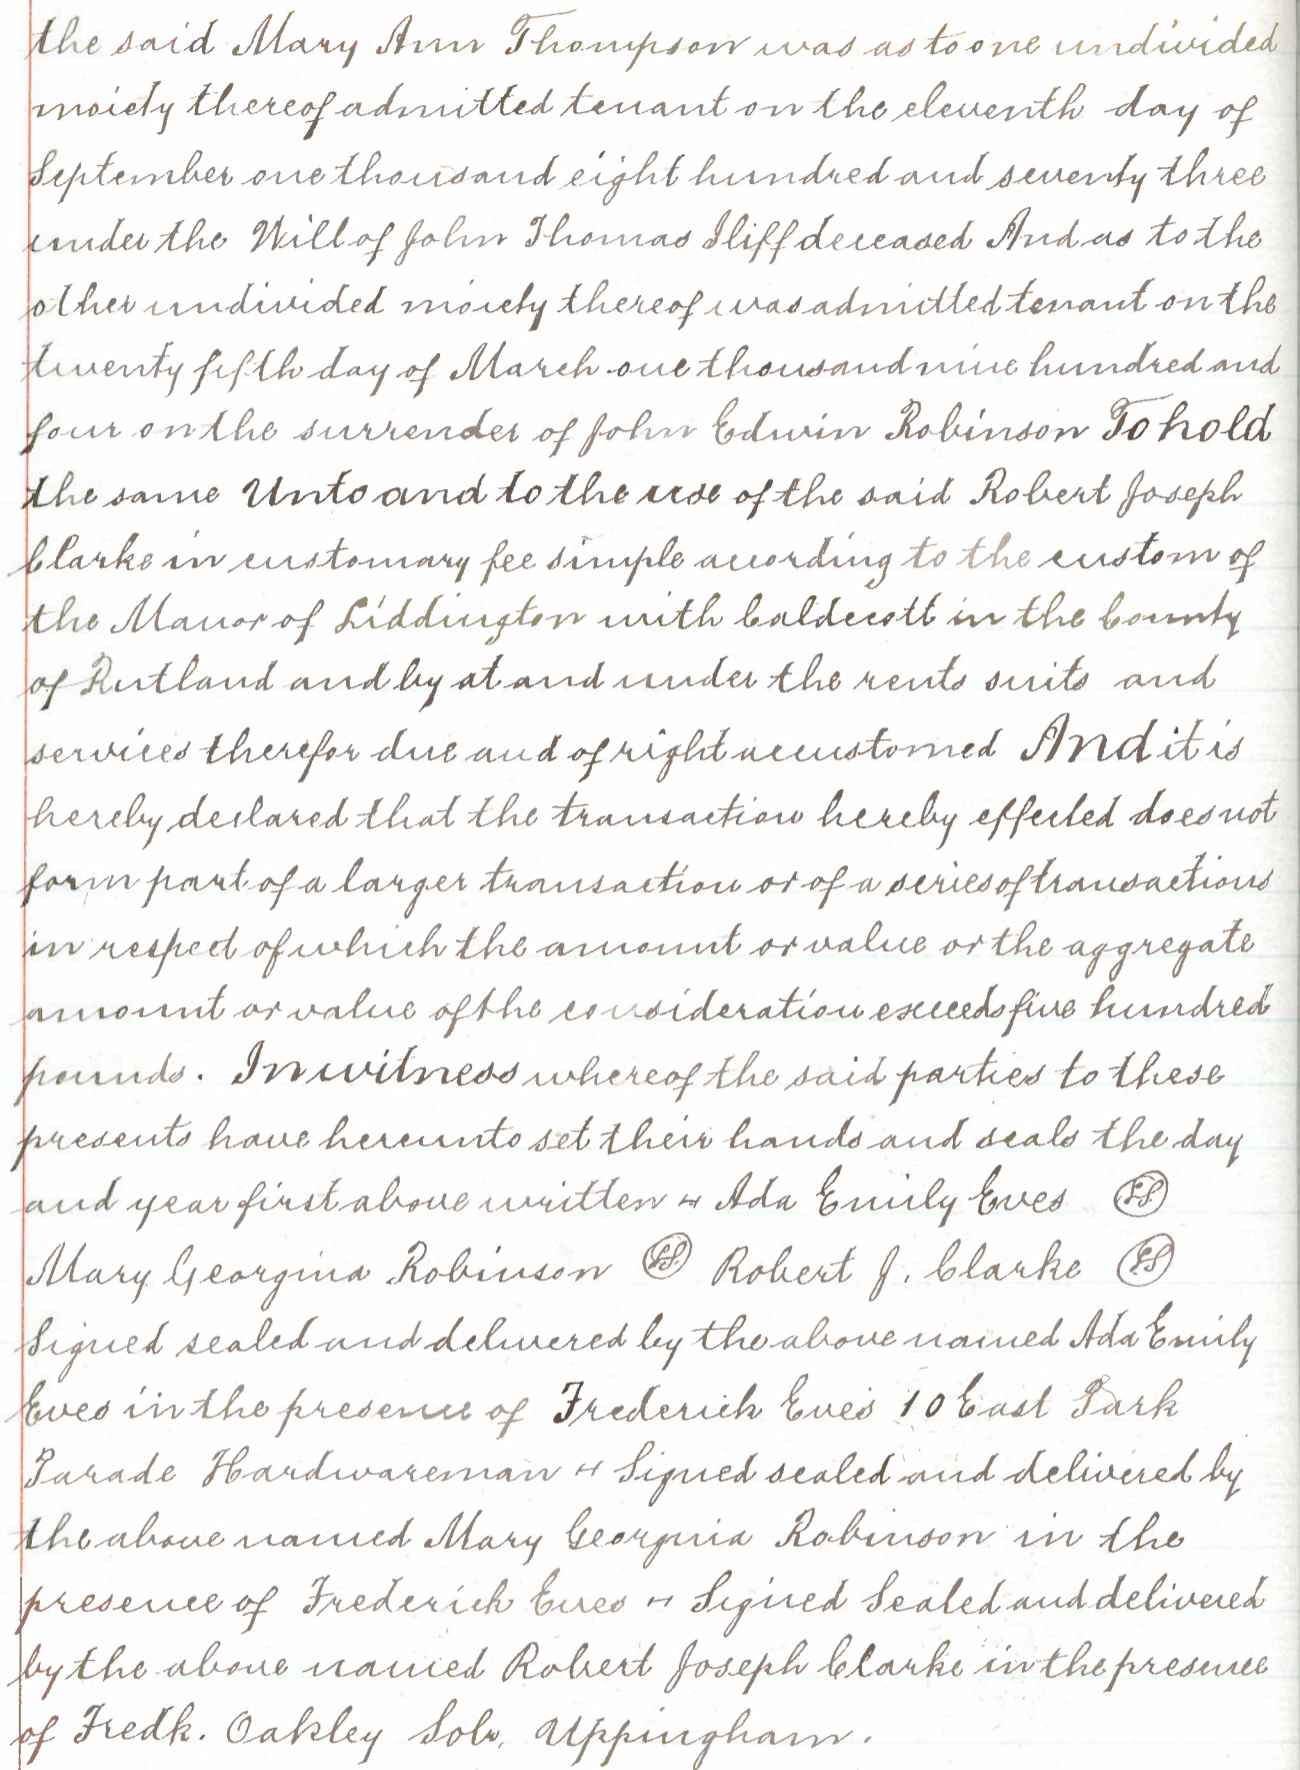 the said Mary Ann Thompson was as to one undivided
moiety thereof admitted tenant on the eleventh day of
September one thousand eight hundred and seventy three
under the Will of John Thomas Iliff deceased And as to the
other undivided moiety thereof was admitted tenant on the
twenty fifth day of March one thousand nine hundred and
four on the surrender of John Edwin Robinson To hold
the same Unto and to the use of the said Robert Joseph
Clarke in customary fee simple according to the custom of
the Manor of Liddington with Caldecott in the County
of Rutland and by at and under the rents suits and
services therefor due and of right accustomed And it is
hereby declared that the transaction hereby effected does not
form part of a larger transaction or of a series of transactions
in respect of which the amount or value or the aggregate
amount or value of the consideration exceeds five hundred
pounds. In witness whereof the said parties to these
presents have hereunto set their hands and seals the day
and year first above written ~ Ada Emily Eves LS
Mary Georgina Robinson LS Robert J. Clarke LS
Signed sealed and delivered by the above named Ada Emily
Eves in the presence of Frederick Eves 10 East Park
Parade Hardwareman ~ Signed sealed and delivered by
the above named Mary Georgina Robinson in the
presence of Frederick Eves ~ Signed Sealed and delivered
by the above named Robert Joseph Clarke in the presence
of Fredk. Oakley Solr. Uppingham.